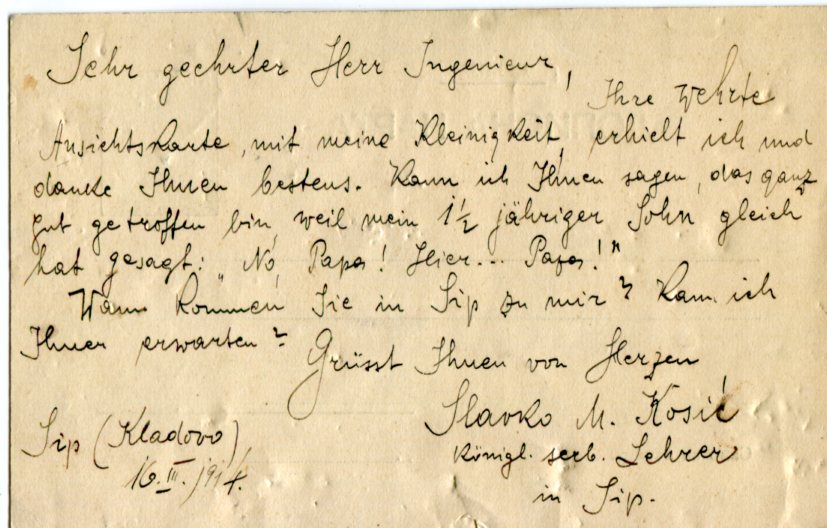 Sehr geehrter Herr Ingenieur,
Ihre wehrte
Ansichtskarte, mit meine Kleinigkeit, erhielt ich und
dancke Ihnen bestens. Kann ich Ihnen sagen, das ganz
gut getroffen bin, weil mein 1½ jähriger Sohn gleich
hat gesagt: „No, Papa! Hier... Papa!"
Wann kommen Sie in Sip zu mir? Kann ich
Ihner erwarten?
Grüsst Ihnen von Herzen
Slavko M. Kosić
Königl. serb. Lehrer
in Sip.
Sip (Kladovo)
16.III.1914.